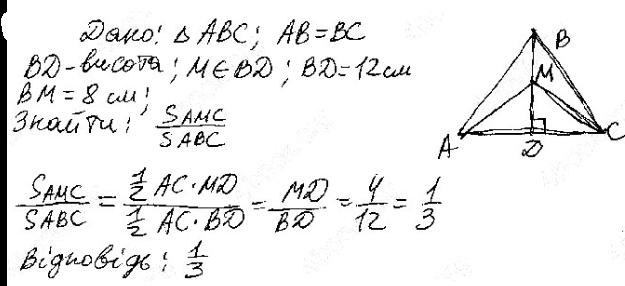 Дано: Δ ABC; AB=BC
BD-висота; M∈BD; BD=12см
BM=8 см;
Знайти: SAMC/SABC
B
M
A
D
C
SAMC/SABC = (1/2 AC·MD)/(1/2 AC·BD) = MD/BD = 4/12 = 1/3
Відповідь: 1/3